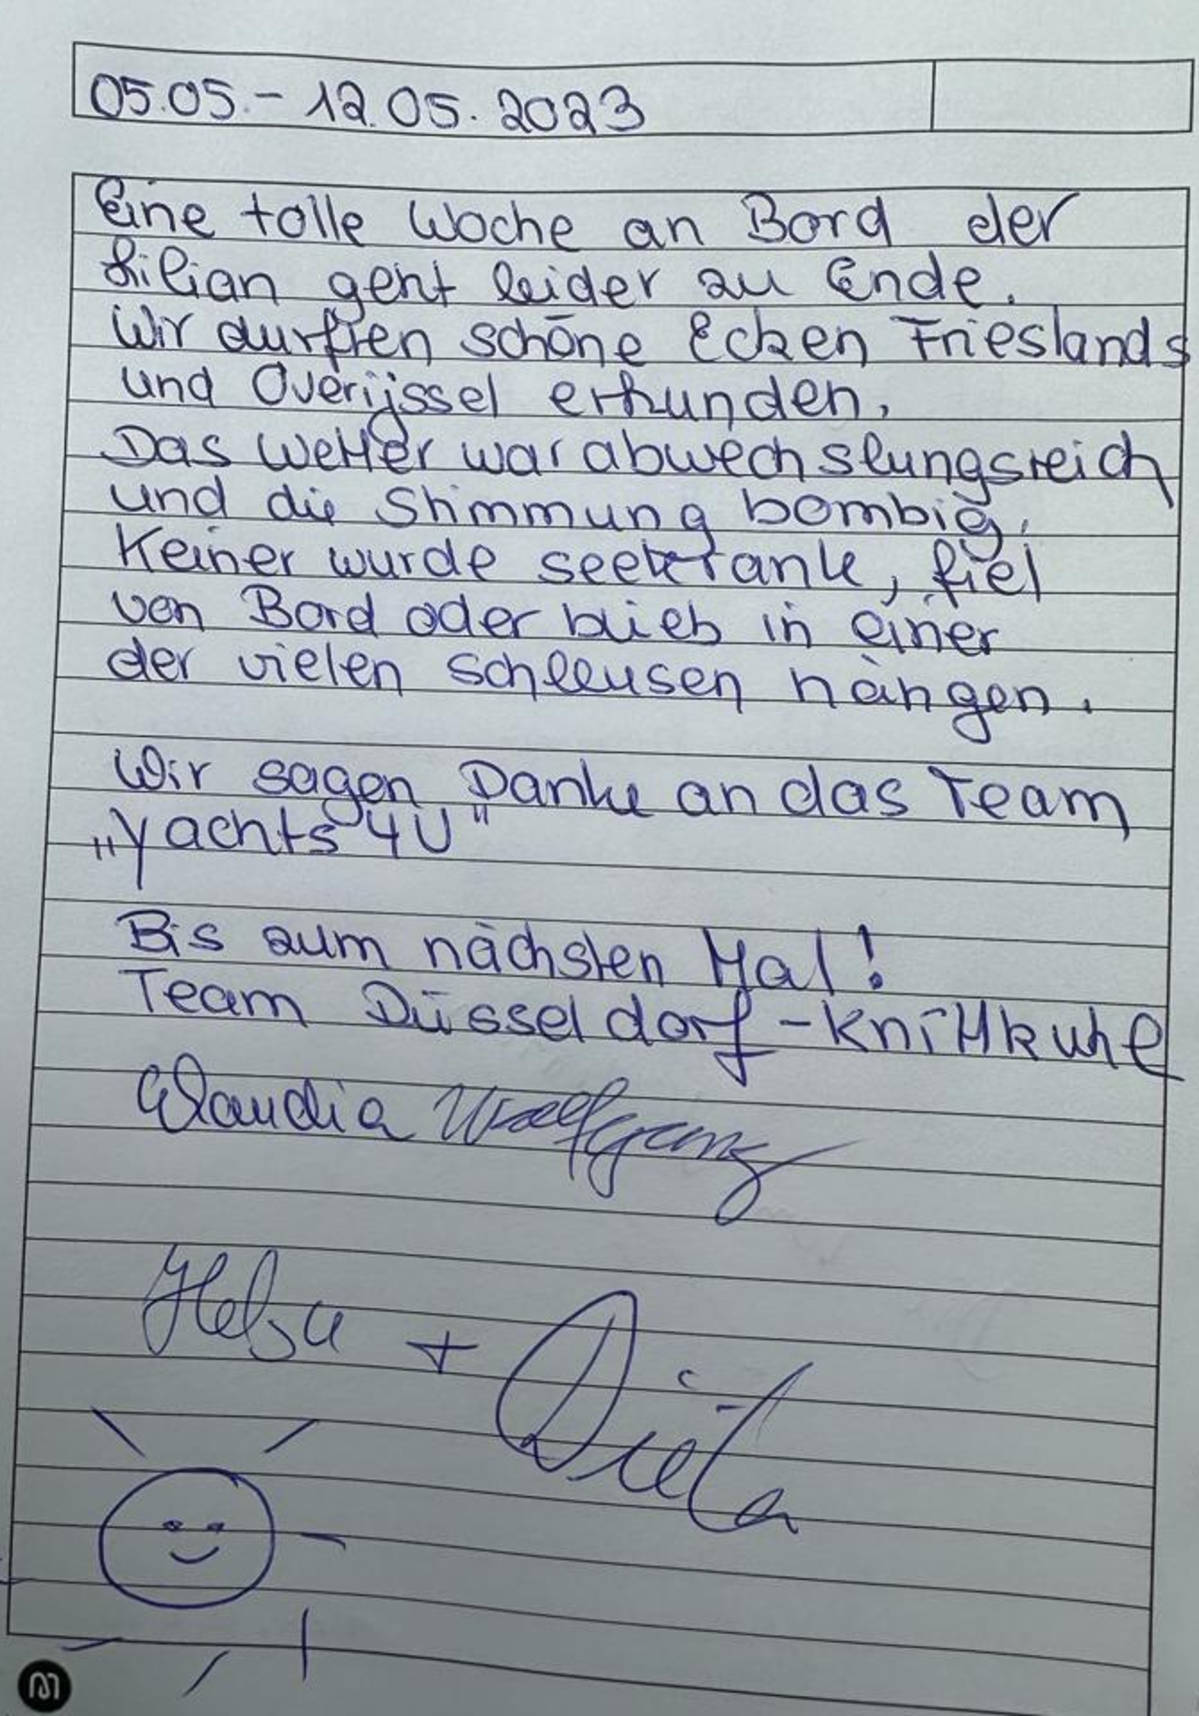 05.05. - 12.05.2023
Eine tolle Woche an Bord der
Lilian geht leider zu Ende.
Wir durften schöne Ecken Frieslands
und Overijssel erkunden.
Das Wetter war abwechslungsreich
und die Stimmung bombig.
Keiner wurde seekrank, fiel
von Bord oder blieb in einer
der vielen Schleusen hängen.
Wir sagen Danke an das Team
„Yachts 4U"
Bis zum nächsten Mal!
Team Düsseldorf-Knittkuhl
Claudia Wolfgang
+